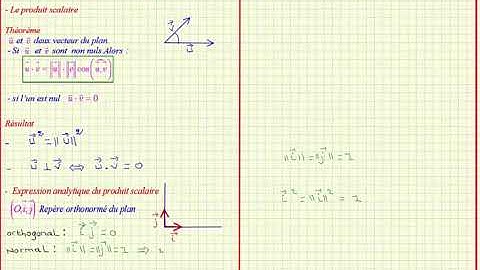 - Le produit scalaire
Théorème
u⃗ et v⃗ deux vecteur du plan
- Si u⃗ et v⃗ sont non nuls Alors :
u⃗ · v⃗ = ||u⃗|| · ||v⃗|| cos(u⃗, v⃗)
v⃗
u⃗
- si l'un est nul u⃗ · v⃗ = 0
Résultat
- u⃗² = ||u⃗||²
- u⃗ ⊥ v⃗ ⇔ u⃗ . v⃗ = 0
- Expression analytique du produit scalaire
(O, i⃗; j⃗) Repère orthonormé du plan
orthogonal : i⃗ j⃗ = 0
Normal : ||i⃗|| = ||j⃗|| = 1 ⇒
j⃗
i⃗
||i⃗|| = ||j⃗|| = 1
i⃗² = ||i⃗||² = 1